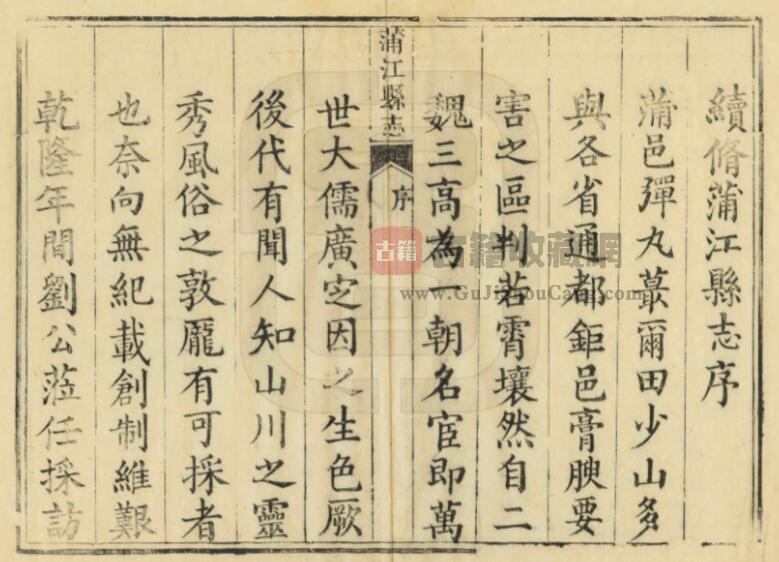 續脩蒲江縣志序
蒲邑彈丸蕞爾田少山多
與各省通都鉅邑膏腴要
害之區判若霄壤然自二
魏三高為一朝名宦即萬
蒲江縣志 序
世大儒廣定因之生色厥
後代有聞人知山川之靈
秀風俗之敦龐有可採者
也奈向無紀載創制維艱
乾隆年間劉公蒞任採訪
古籍
古籍收藏网
www.GuJiShouCang.com